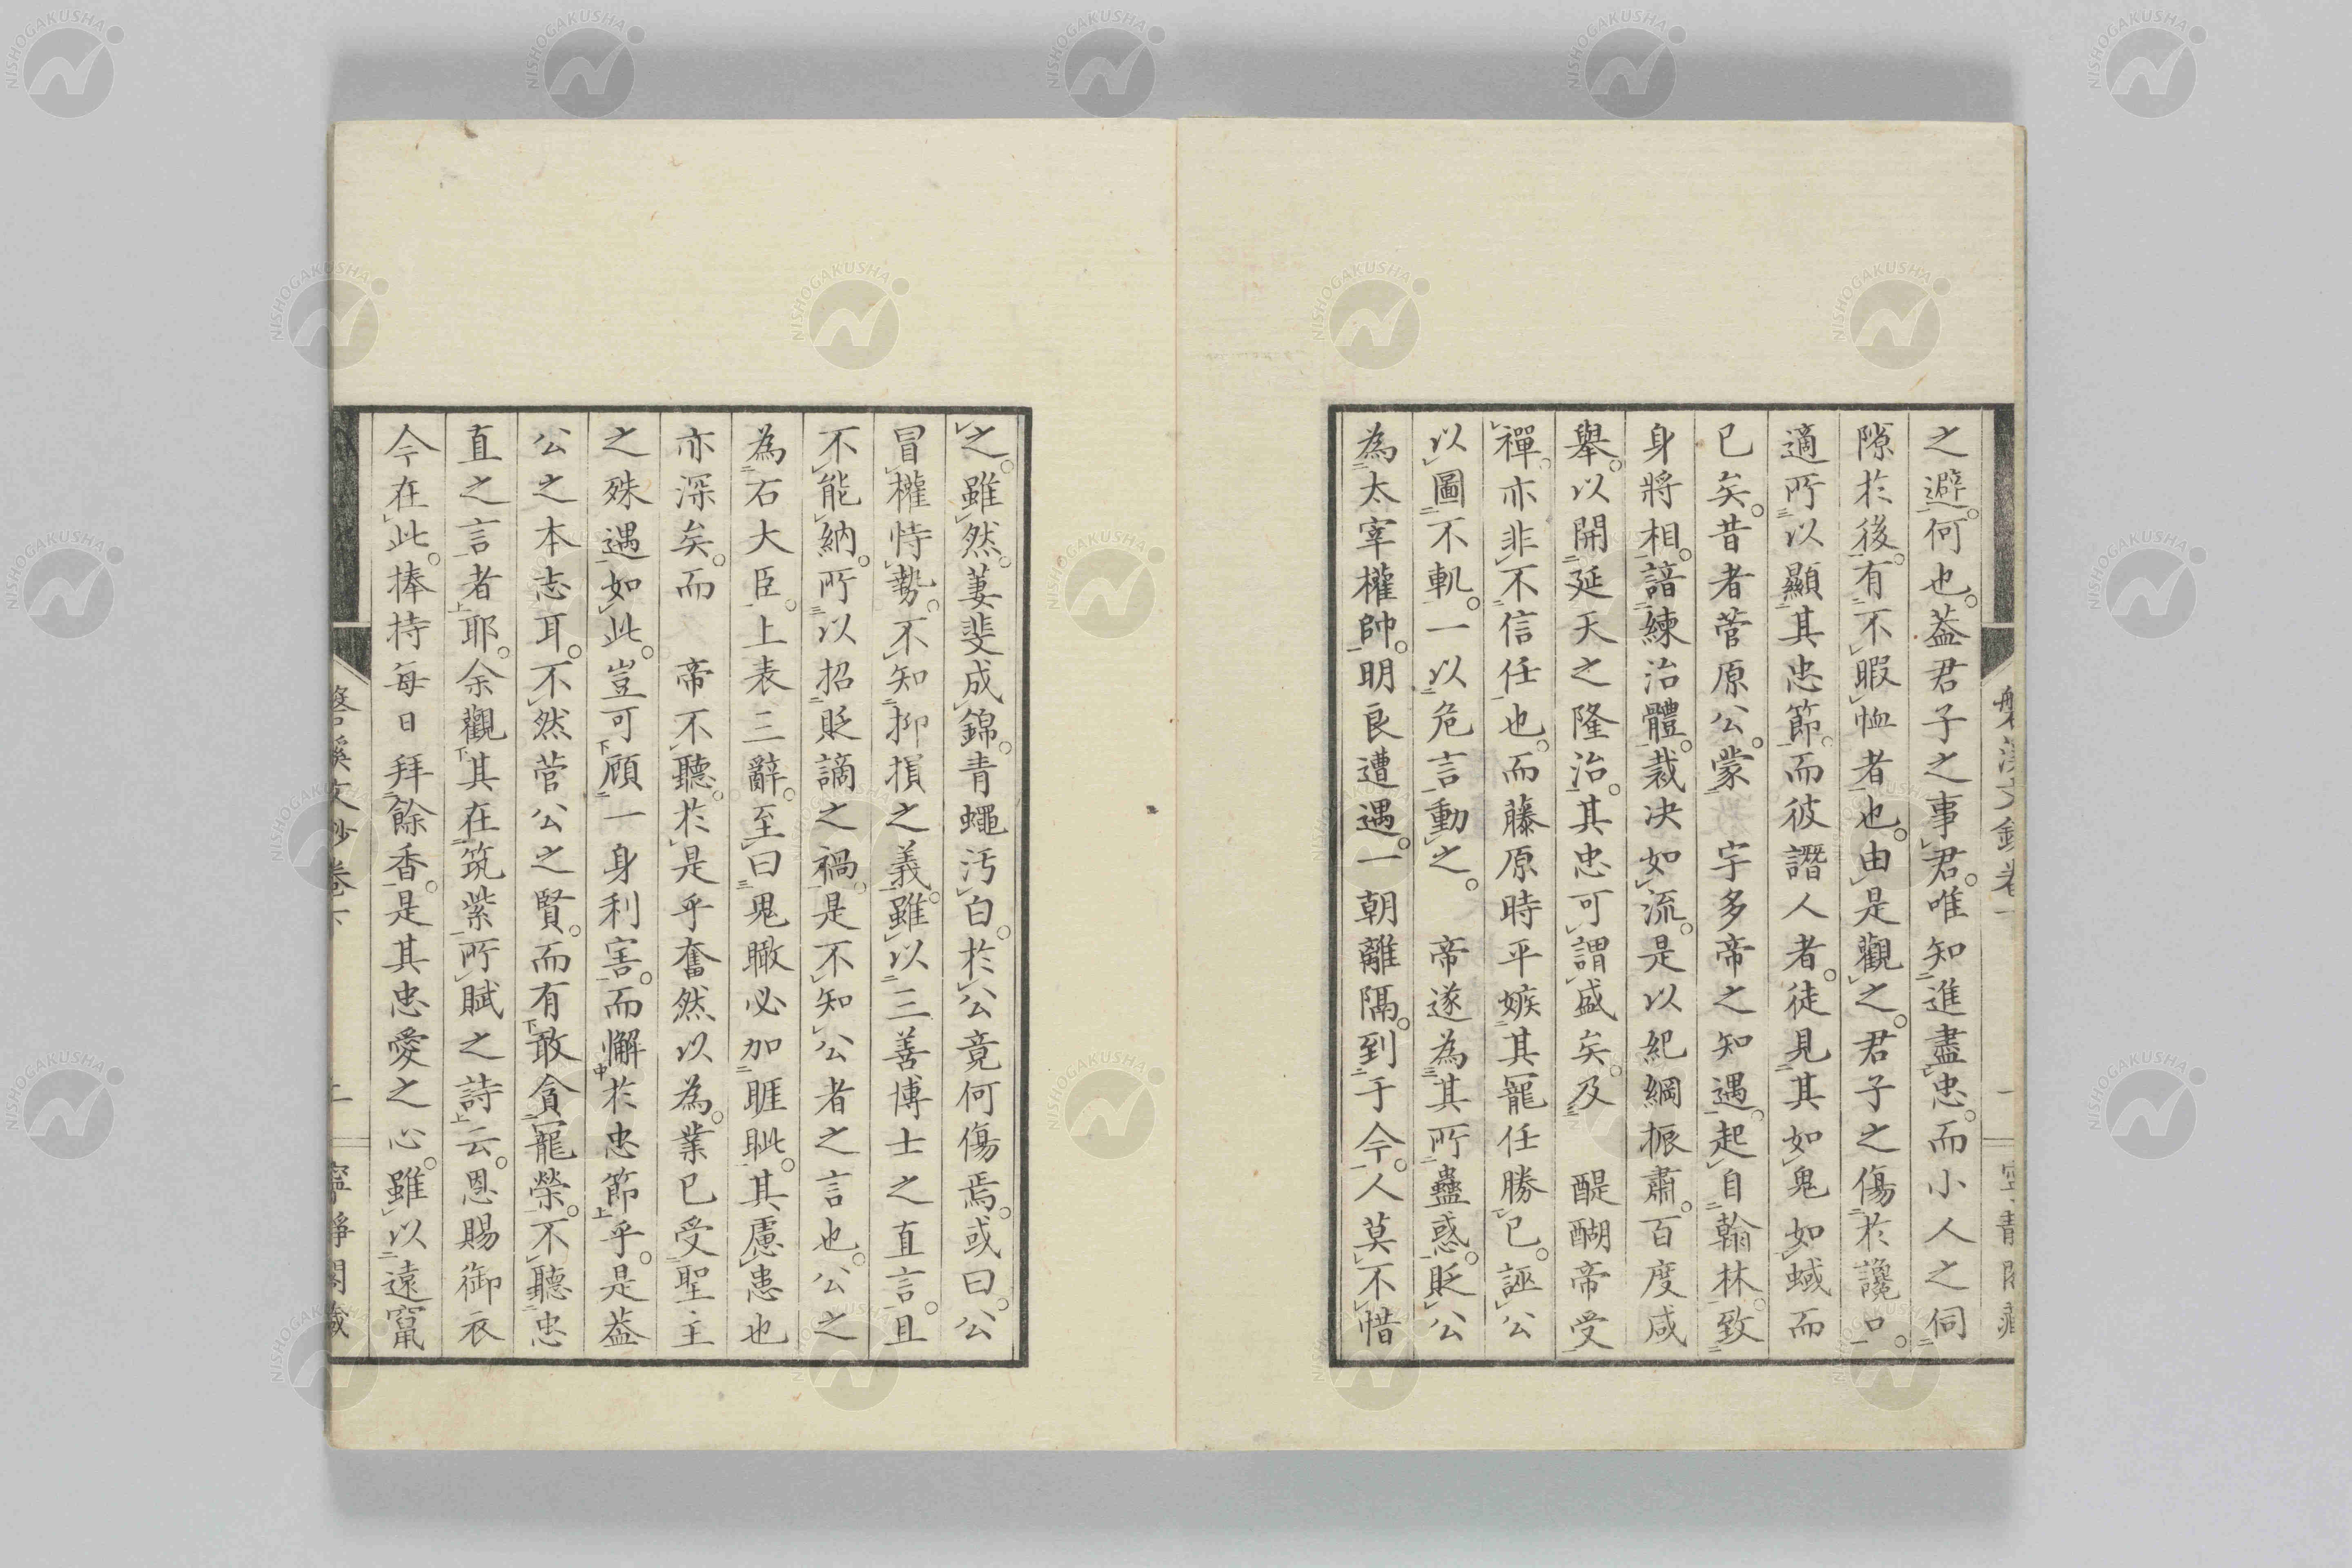 之避。何也。葢君子之事君。唯知進盡忠。而小人之伺
隙於後。有不暇恤者也。由是觀之。君子之傷於讒口。
適所以顯其忠節。而彼譖人者。徒見其如鬼如蜮而
已矣。昔者菅原公。蒙 宇多帝之知遇。起自翰林。致
身將相。諳練治體。裁决如流。是以紀綱振肅。百度咸
舉。以開延天之隆治。其忠可謂盛矣。及 醍醐帝受
禪。亦非不信任也。而藤原時平嫉其寵任勝己。誣公
以圖不軌。一以危言動之。 帝遂為其所蠱惑。貶公
為太宰權帥。明良遭遇。一朝離隔。到于今。人莫不惜
之。雖然。萋斐成錦。青蠅汚白。於公竟何傷焉。或曰。公
冒權恃勢。不知抑損之義。雖以三善博士之直言。且
不能納。所以招貶謫之禍。是不知公者之言也。公之
為右大臣。上表三辭。至曰鬼瞰必加睚眦。其慮患也
亦深矣。而 帝不聽。於是乎奮然以為。業已受聖主
之殊遇如此。豈可顧一身利害。而懈於忠節乎。是葢
公之本志耳。不然菅公之賢。而有敢貪寵榮。不聽忠
直之言者耶。余觀其在筑紫所賦之詩云。恩賜御衣
今在此。捧持每日拜餘香。是其忠愛之心。雖以遠竄
磐溪文鈔卷下
寧靜閣藏